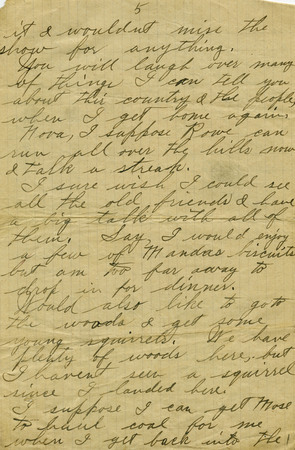 5
it & wouldnt miss the
show for anything.
You will laugh over many
of things I can tell you
about this country & the people
when I get home again.
Nova, I suppose Rowe can
run all over the hills now
& talk a streak.
I sure wish I could see
all the old friends & have
a big talk with all of
them. Say I would enjoy
a few of Mandas biscuits
but am too far away to
drop in for dinner.
Would also like to go to
the woods & get some
young squirrels. We have
plenty of woods here, but
I havent seen a squirrel
since I landed here.
I suppose I can get Mose
to haul coal for me
when I get back into the